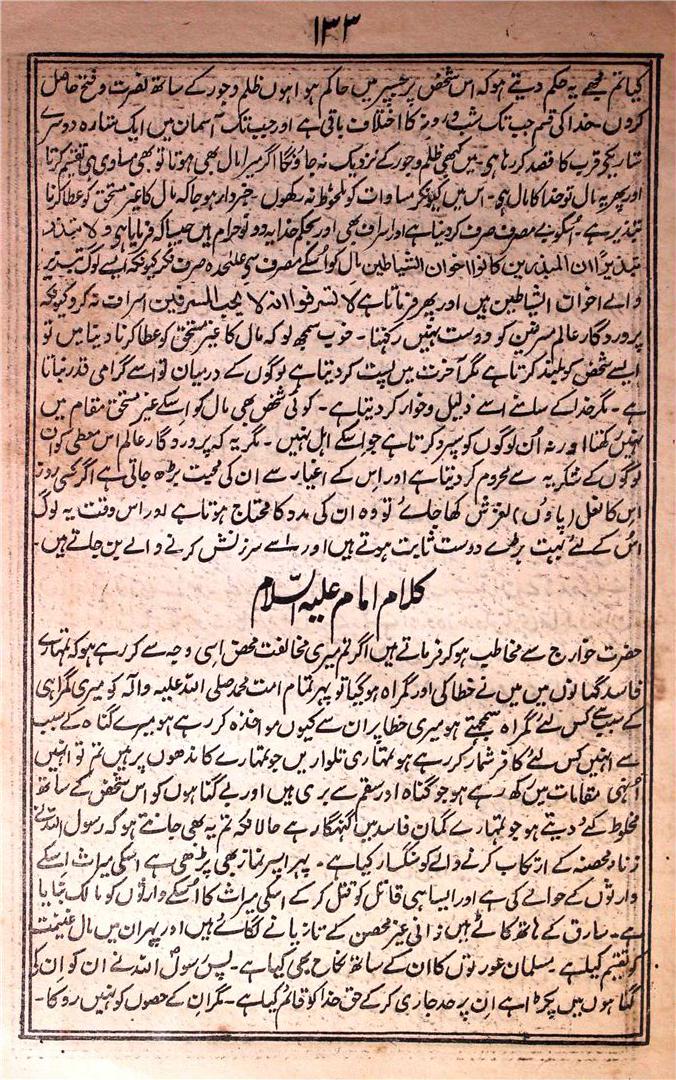 ۱۳۳
کیا تم مجھے یہ حکم دیتے ہو کہ اس شخص پر جسپر میں حاکم ہوا ہوں ظلم وجور کے ساتھ نصرت و فتح حاصل
کروں۔ خدا کی قسم جب تک شب و روز کا اختلاف باقی ہے اور جب تک آسمان میں ایک ستارہ دوسرے
ستاریکی قرب کا قصد کر رہا ہی۔ میں کبھی ظلم وجور کے نزدیک نہ جاؤنگا اگر میرا مال بھی ہوتا تو بھی مساوی ہی تقسیم کرتا
اور پھر یہ مال تو خدا کا مال ہی۔ اس میں کیونکر مساوات کو ملحوظ نہ رکھوں۔ خبردار ہو جا کہ مال کا غیر مستحق کو عطا کرنا
تبذیر ہے۔ اسکو بے مصرف صرف کر دینا ہے اور اسراف بھی اور بحکم خدا یہ دونو حرام ہیں جیسا کہ فرمایا ہی ولا تبذر
تبذیراً ان المبذرین کانوا اخوان الشیاطین مال کو اسکے مصرف سی علٰحدہ صرف نکر کیونکہ ایسے لوگ تبذیر
والے اخوان الشیاطین ہیں اور پھر فرماتا ہے لا تسرفوا انہ لا یحب المسرفین اسراف نہ کرو کیونکہ
پروردگار عالم مسرفین کو دوست نہیں رکھتا۔ خوب سمجھ لو کہ مال کا غیر مستحق کو عطا کرنا دنیا میں تو
ایسے شخص کو بلند کرتا ہے مگر آخرت میں پست کر دیتا ہے لوگوں کے درمیان تو اسے گرامی قدر بناتا
ہے۔ مگر خدا کے سامنے اسے ذلیل وخوار کر دیتا ہے۔ کوئی شخص بھی مال کو اسکے غیر مستحق مقام میں
نہیں رکھتا اور نہ اُن لوگوں کو سپرد کرتا ہے جو اسکے اہل نہیں۔ مگر یہ کہ پروردگار عالم اس معطی کو ان
لوگوں کے شکریہ سے محروم کر دیتا ہے اور اس کے اغیار سے ان کی محبت بڑھ جاتی ہے اگر کسی روز
اس کا نعل (پاؤں) لغزش کھا جائے تو وہ ان کی مدد کا محتاج ہوتا ہے اور اس وقت یہ لوگ
اس کے لئے بہت بڑے دوست ثابت ہوتے ہیں اور اسے سرزنش کرنے والے بن جاتے ہیں۔
کلام امام علیہ السّلام
حضرت خوارج سے مخاطب ہو کر فرماتے ہیں اگر تم میری مخالفت محض اسی وجہ سے کر رہے ہو کہ تمہارے
فاسد گمانوں میں میں نے خطا کی اور گمراہ ہو گیا تو پھر تمام امت محمد صلی اللہ علیہ وآلہ کو میری گمراہی
کے سبب سے کس لئے گمراہ سمجھتے ہو میری خطا پر ان سے کیوں مواخذہ کر رہے ہو میرے گناہ کے سبب
سے انہیں کس لئے کافر شمار کر رہے ہو تمہاری تلواریں جو تمہارے کاندھوں پر ہیں تم تو انہیں
اُنہی مقامات میں رکھ رہے ہو جو گناہ اور سقم سے بری ہیں اور بے گناہوں کو اس شخص کے ساتھ
مخلوط کئے دیتے ہو جو تمہارے گمان فاسد میں گنہگار ہے حالانکہ تم یہ بھی جانتے ہو کہ رسول اللہ نے
زناء محصنہ کے ارتکاب کرنے والے کو سنگسار کیا ہے۔ پھر اسپر نماز بھی پڑھی ہے اسکی میراث اسکے
وارثوں کے حوالے کی ہے اور ایسا ہی قاتل کو قتل کر کے اسکی میراث کا اسکے وارثوں کو مالک بنایا
ہے۔ سارق کے ہاتھ کاٹے ہیں زانی غیر محصن کے تازیانے لگائے ہیں اور پھر ان میں مال غنیمت
کو تقسیم کیا ہے۔ مسلمان عورتوں کا ان کے ساتھ نکاح بھی کیا ہے۔ پس رسول اللہ نے ان کو ان کی
گناہوں میں پکڑا ہے ان پر حد جاری کر کے حق خدا کو قائم کیا ہے۔ مگر ان کے حصوں کو نہیں روکا۔